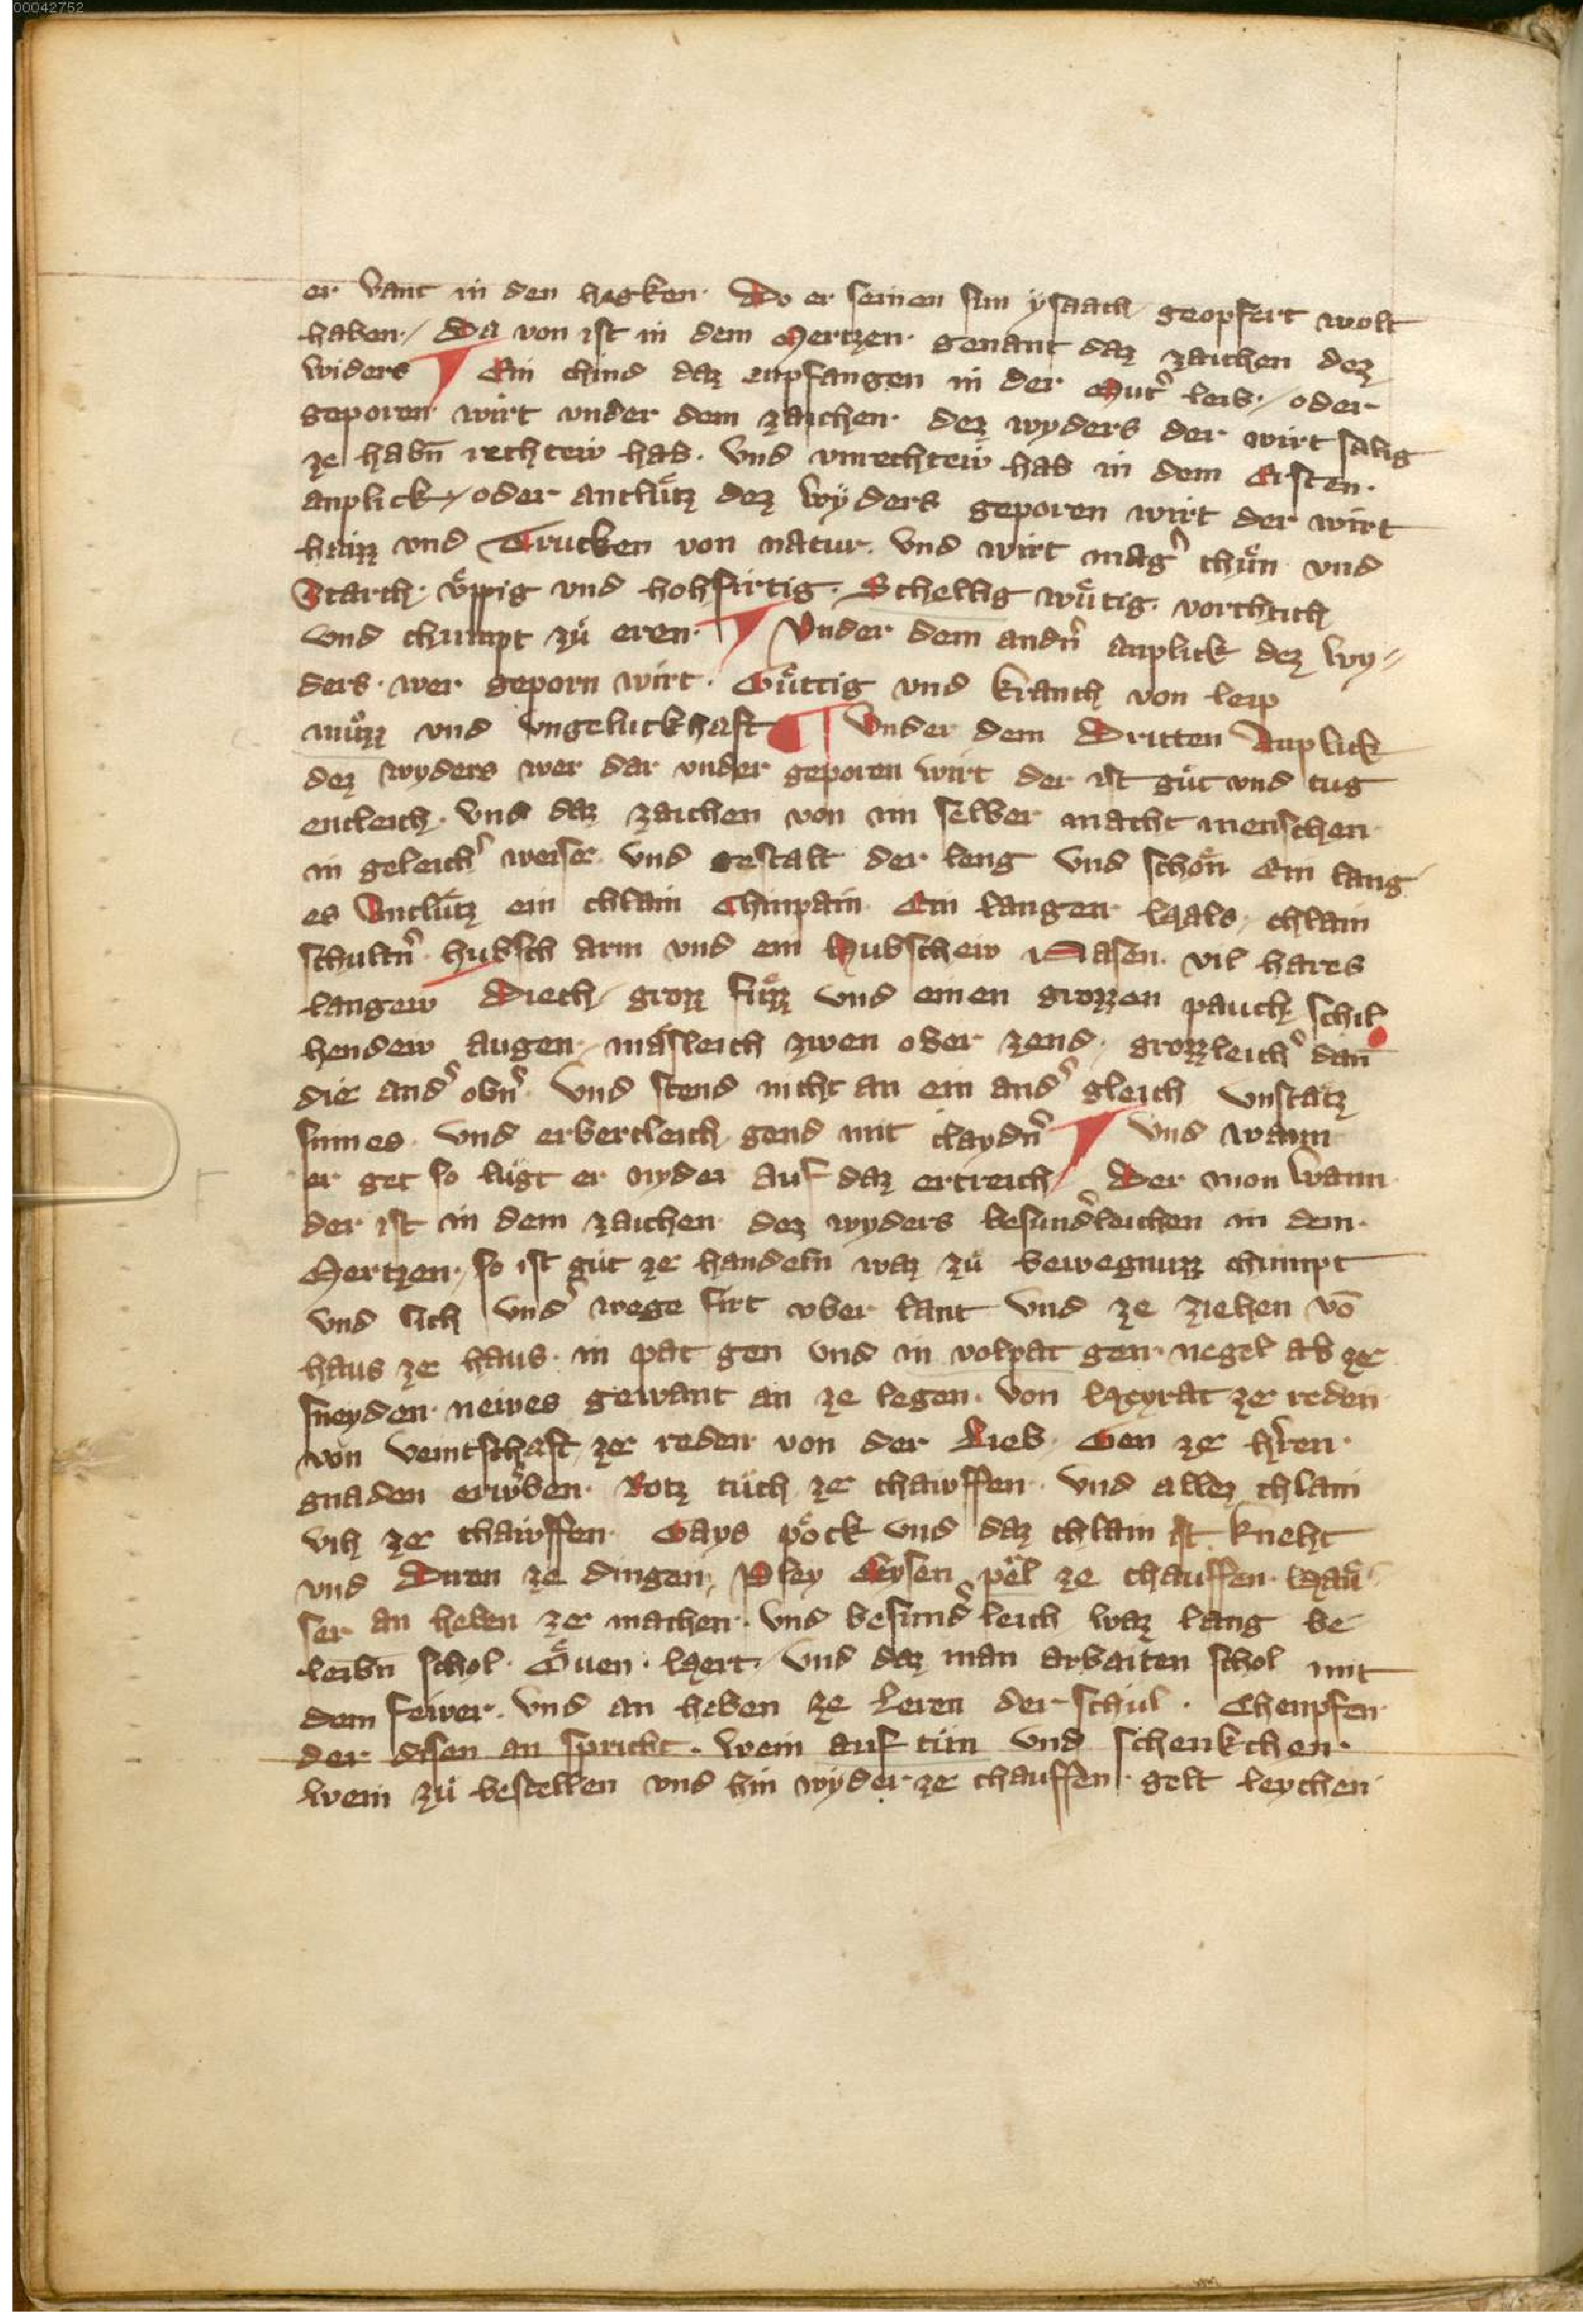 00042752
er vant in den hegken · Do er seinen sun ysaach geopfert wolt
haben / Da von ist in dem Mertzen · genant daz zaichen dez
widers ¶ Ein chind daz enpfangen in der Mut̉ leib / oder
geporen wirt vnder dem zaichen · dez wyders der wirt sälig
ze habn̄ rechtew hab · vnd vnrechtew hab in dem Ersten ·
anplick / oder antlütz dez wyders geporen wirt der wirt
haizz vnd Trucken von natur · vnd wirt mag̉ chün vnd
Starch · üppig vnd hohfirtig · Schellig wütig · vorchtich
vnd chumpt zü eren · ¶ Vnder dem andn̉ anplick dez wy=
ders · wer geporn wirt · Güttig vnd kranch von leip
müzz vnd vngeluckhaft ¶ Vnder dem Dritten Anplick
dez wyders wer dar vnder geporen wirt der ist güt vnd tug
entleich · vnd daz zaichen von im selber macht menschen
in geleich̉ weise · vnd gestalt der leng vnd schön Ein lang
es Antlütz ein chlain Chinpain Ein langen Hals · chlain
schultn̉ hubsch arm vnd ein Hubschew Nasen · vil hares
langew Diech / groz füzz vnd einen grozzen pauch schil
hendew augen · mäsleich zwen ober zend · grozzleich̉ dan̄
die and̉ obn̉ · vnd stend nicht an ein and̉ gleich vnstätz
sinnes · vnd erbercleich gend mit claydn̉ ¶ vnd wann
er get so lügt er nyder auf daz ertreich / Der mon wann
der ist in dem zaichen dez wyders besund̉leichen in dem ·
Mertzen / so ist güt ze handeln waz zü bewegnuzz chumpt
vnd sich vnd̉ wege firt vber lant vnd ze ziehen vō
haus ze haus · in pat gen vnd in volpat gen · negel ab ze
sneyden · newes gewant an ze legen · von Heyrat ze reden
von veintschaft ze reden von der Lieb · Gen ze h̉ren ·
gnaden erw̉ben · Rotz tüch ze chawffen · vnd allez chlain
vih ze chawffen · Gays pöck vnd daz chlain ist · kneht
vnd Diren ze dingen · Pley Eysen pël ze chauffen · Häu=
ser an heben ze machen · vnd besund̉leich waz lang be
leibn̄ schol · Öuen · Hert / vnd daz man arbaiten schol mit
dem fewer · vnd an heben ze leren der schul · Chenpfen
der disen an spricht · wein auf tün vnd schenkchen ·
wein zü bestellen vnd hin wyder ze chauffen · gelt leychen